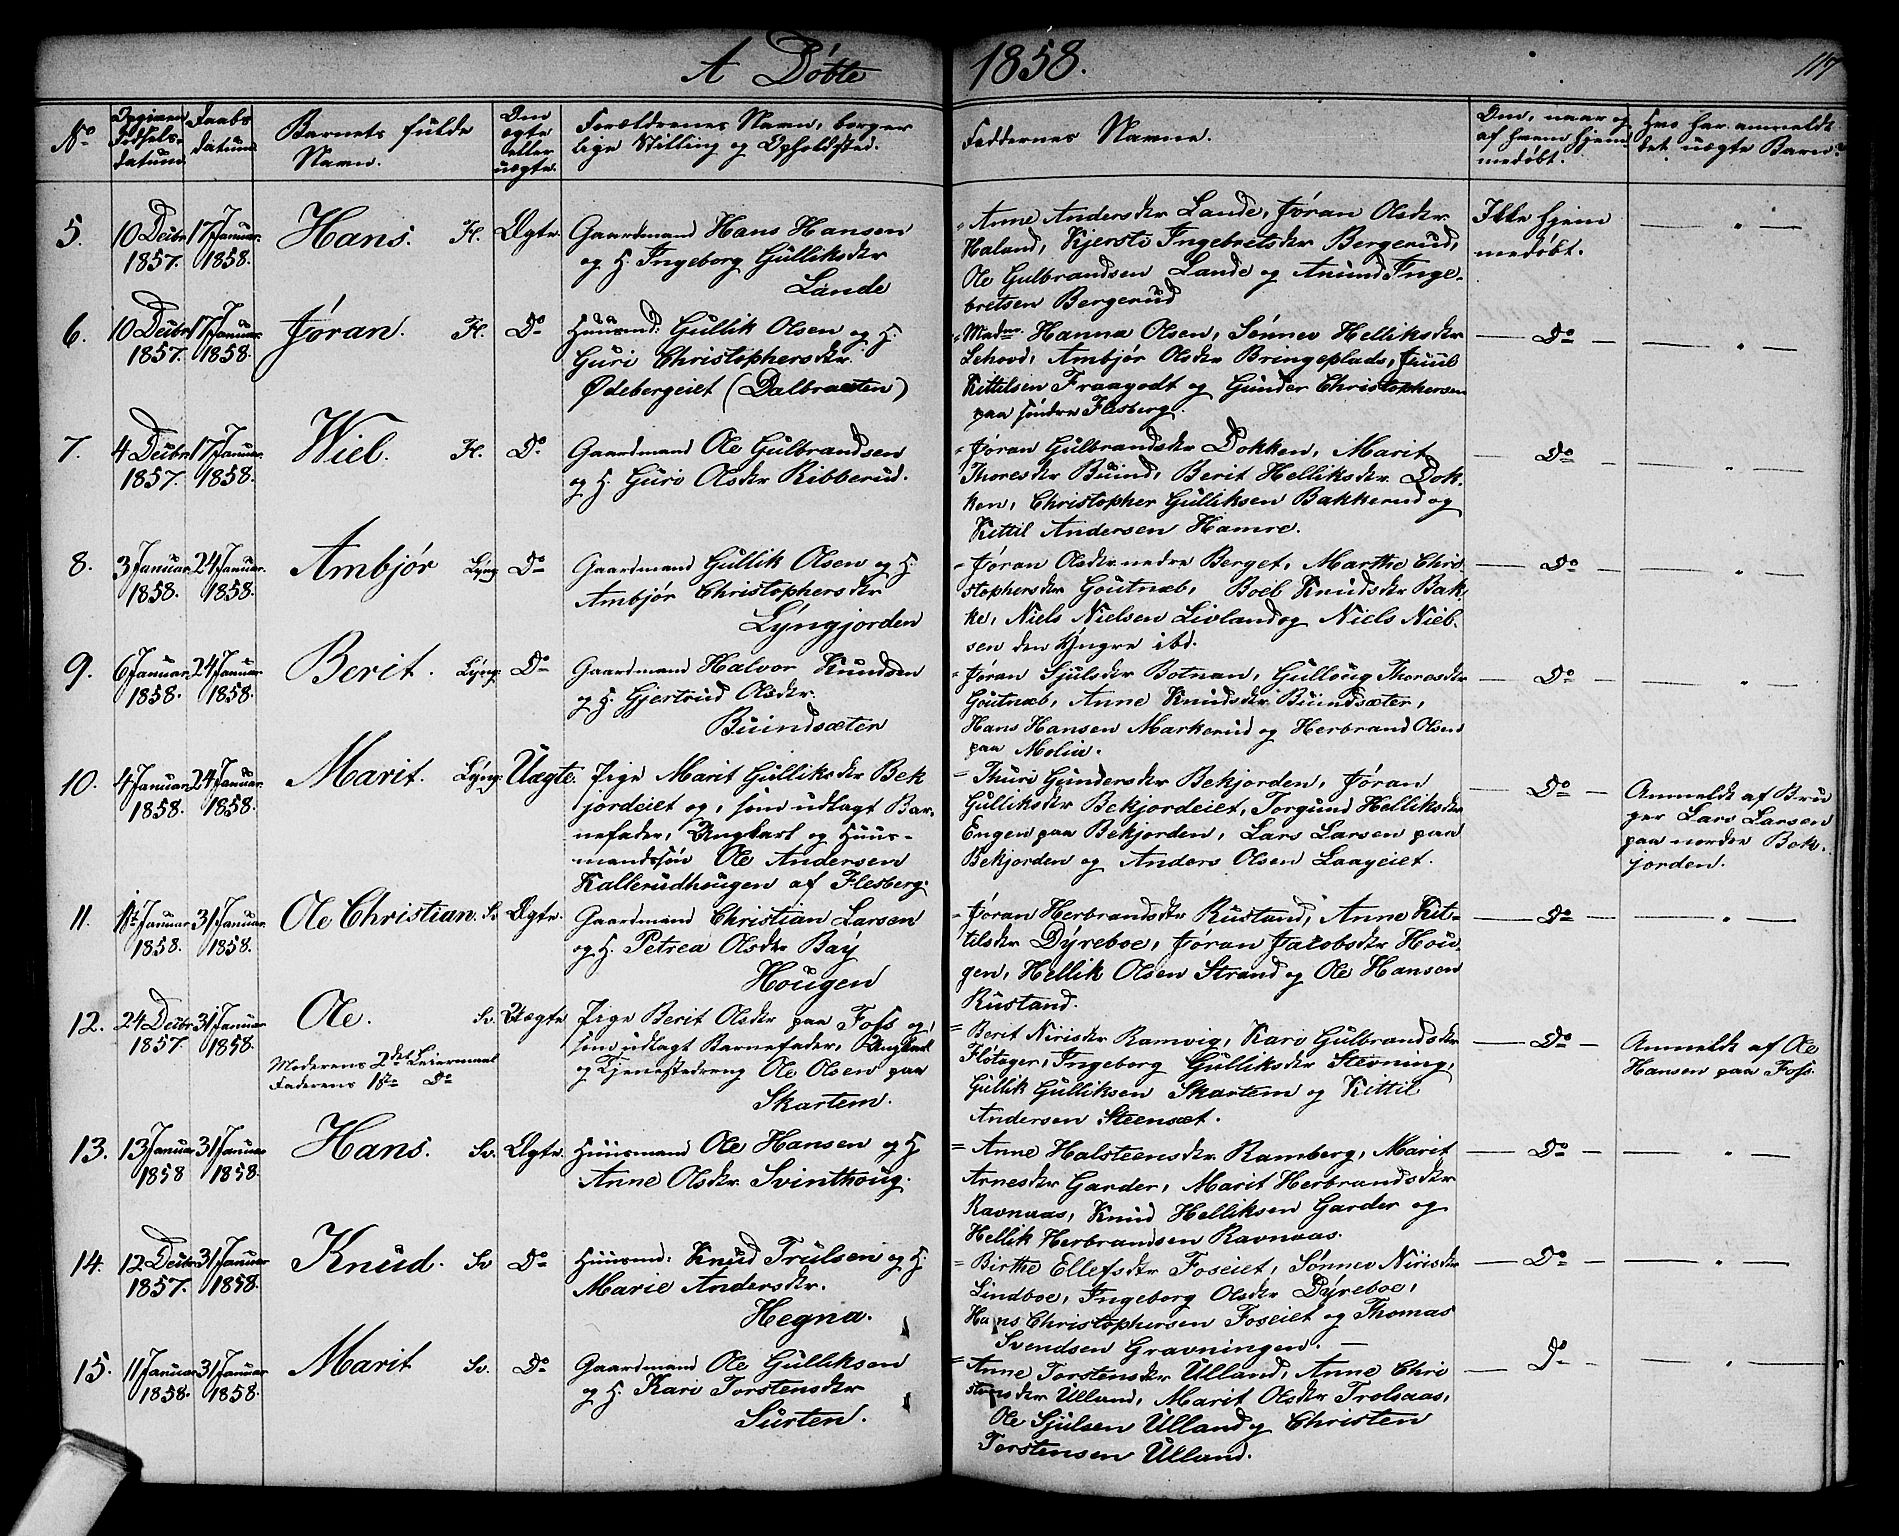 A Døbte 1858. 117
No Opgiven Fødsels-datum. Daabs datum. Barnets fulde Navn. Om ægte eller uægte. Forældrenes Navn, borgerlige Stilling og Opholdsted. Faddernes Navne. Om, naar og af hvem hjemmedøbt. Hvo har anmeldt det uægte Barn.
5. 10 Decbr 1857. 17 Januar 1858. Hans. H. Ægte.
Gaardmand Hans Hansen
og H. Ingeborg Gulliksdtr
Lande
Anne Andersdtr Lande, Jøran Olsdtr
Haland, Kjersti Ingebretsdtr Bergerud,
Ole Gulbrandsen Lande og Anund Inge-
bretsen Bergerud
Ikke hjem
medøbt.
6. 10 Decbr 1857. 17 Januar 1858. Jøran. H. Do
Huusmd: Gullik Olsen og H.
Guri Christophersdtr
Ødebergeiet (Dalbraaten)
Madm Hanna Olsen, Sønnev Helliksdtr
Lehovd, Ambjør Olsdtr Bringeplads, Juul
Kittilsen Fraagodt og Gunder Christophersen
paa søndre Flesberg.
Do
7. 4 Decbr 1857. 17 Januar 1858. Wiel. H. Do
Gaardmand Ole Gulbrandsen
og H. Guro Olsdtr Ribberud.
Jøran Gulbrandsdtr Dokken, Marit
Thoresdtr Buind, Berit Helliksdtr Dok-
ken, Christopher Gulliksen Bakkerud og
Kittil Andersen Hamre.
Do
8. 3 Januar 1858. 24 Januar 1858. Ambjør Lyng Do
Gaardmand Gullik Olsen og H.
Ambjør Christophersdtr
Lyngjorden
Jøran Olsdtr nedre Berget, Marthe Chri-
stophersdtr Goutnæb, Boel Knudsdtr Bak-
ke, Niels Nielsen Livland og Niels Niel-
sen den Yngre ibd.
Do
9. 6 Januar 1858. 24 Januar 1858. Berit. Lyng: Do
Gaardmand Halvor Knudsen
og H. Gjertrud Olsdtr
Buindsæter
Jøran Sjulsdtr Botnan, Gulloug Thoresdtr
Goutnæb, Anne Knudsdtr Buindsæter,
Hans Hansen Markerud og Herbrand Olsen
paa Molia.
Do
10. 4 Januar 1858. 24 Januar 1858. Marit. Lyng: Uægte.
Pige Marit Gulliksdtr Bek
jordeiet og, som udlagt Bar-
nefader, Ungkarl og Huus-
mandssøn Ole Andersen
Kallerudhougen af Flesberg.
Thuri Gundersdtr Bekjorden, Jøran
Gulliksdtr Bekjordeiet, Torgund Helliksdtr
Engen paa Bekjorden, Lars Larsen paa
Bekjorden og Anders Olsen Laageiet.
Do
Anmeldt af Bru
ger Lars Larsen
paa nordre Bek-
jorden.
11. Januar 1858. 31 Januar 1858. Ole Christian. Sv Ægte.
Gaardmand Christian Larsen
og H. Petrea Olsdtr Bay
Hougen
Jøran Herbrandsdtr Rustand, Anne Kit-
tilsdtr Dyreboe, Jøran Jacobsdtr Hou-
gen, Hellik Olsen Strand og Ole Hansen
Rustand.
Do
12. 24 Decbr 1857. 31 Januar 1858. Ole. Sv. Uægte
Moderens 2det Leiermaal
Faderens 1ste Do
Pige Berit Olsdtr paa Foss og,
som udlagt Barnefader, Ungkarl
og Tjenestedreng Ole Olsen paa
Skartem.
Berit Nirisdtr Ramvig, Kari Gulbrandsdtr
Flotager, Ingeborg Gulliksdtr Stevning,
Gullik Gulliksen Skartem og Kittil
Andersen Steensæt.
Do
Anmeldt af Ole
Hansen paa Foss.
13. 13 Januar 1858 31 Januar 1858. Hans. Sv. Ægte.
Huusmand Ole Hansen og H
Anne Olsdtr Svinthoug.
Anne Halsteensdtr Ramberg, Marit
Arnesdtr Garder, Marit Herbrandsdtr
Ravnaas, Knud Helliksen Garder og
Hellik Herbrandsen Ravnaas.
Do
14. 12 Decbr 1857. 31 Januar 1858. Knud. Sv Do
Huusmd: Knud Trulsen og H.
Marie Andersdtr.
Hegna.
Birthe Ellefsdtr Foseiet, Sønnev Nirisdtr
Lindboe, Ingeborg Olsdtr Dyreboe,
Hans Christophersen Foseiet og Thomas
Svendsen Gravningen.
Do
15. 11 Januar 1858. 31 Januar 1858. Marit Sv. Do
Gaardmand Ole Gulliksen
og H. Kari Torstensdtr
Surten.
Anne Torstensdtr Ulland, Anne Chri
stensdtr Ulland, Marit Olsdtr Trolsaas,
Ole Sjulsen Ulland og Christen
Torstensen Ulland.
Do